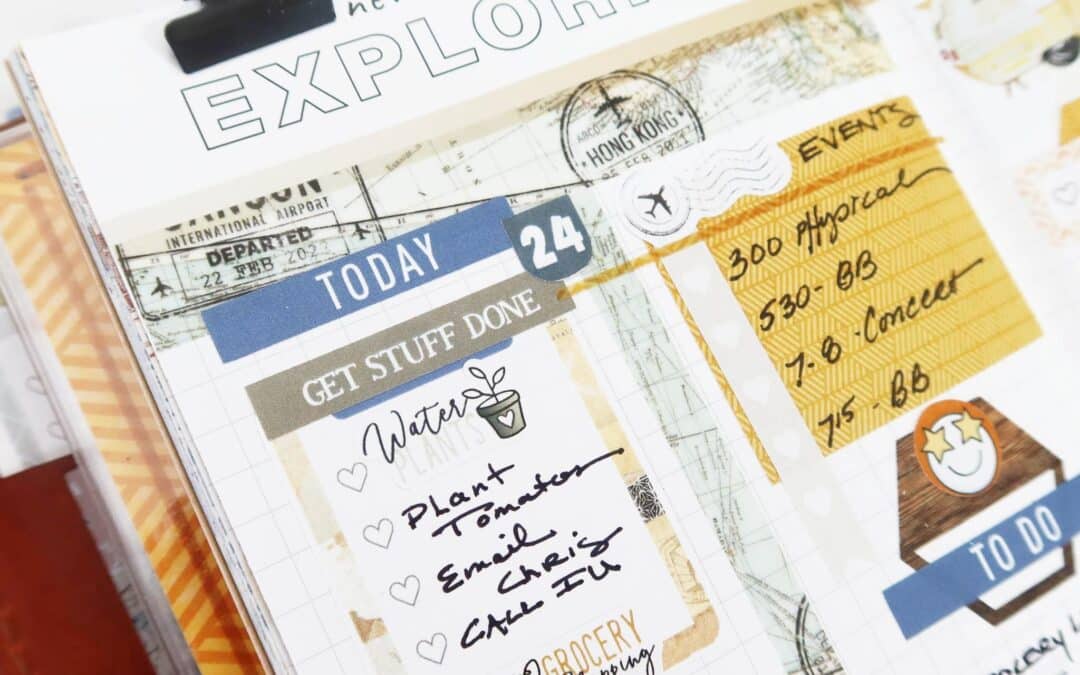 EXPLOR
HONG KONG
INTERNATIONAL AIRPORT
DEPARTED
22 FEB 202
TODAY
24
GET STUFF DONE
Water
PLANTS
Plant
Tomatoes
Email
Chris
CALL IU
GROCERY
EVENTS
300 Physical
530 - BB
7-8 - Concert
715 - BB
TO DO